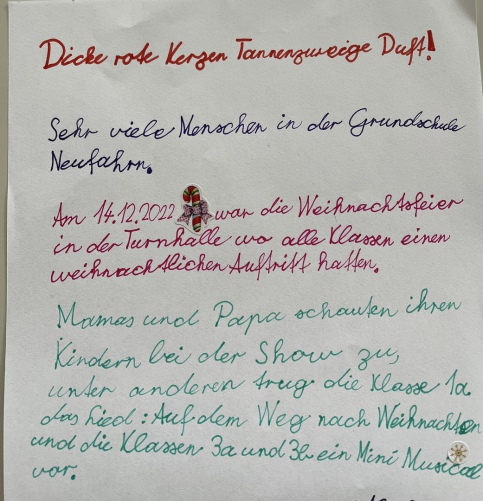 Dicke rote Kerzen Tannenzweige Duft!
Sehr viele Menschen in der Grundschule
Neufahrn.
Am 14.12.2022 war die Weihnachtsfeier
in der Turnhalle wo alle Klassen einen
weihnachtlichen Auftritt hatten.
Mamas und Papa schauten ihren
Kindern bei der Show zu,
unter anderen trug die Klasse 1a
das Lied: Auf dem Weg nach Weihnachten
und die Klassen 3a und 3b ein Mini Musical
vor.